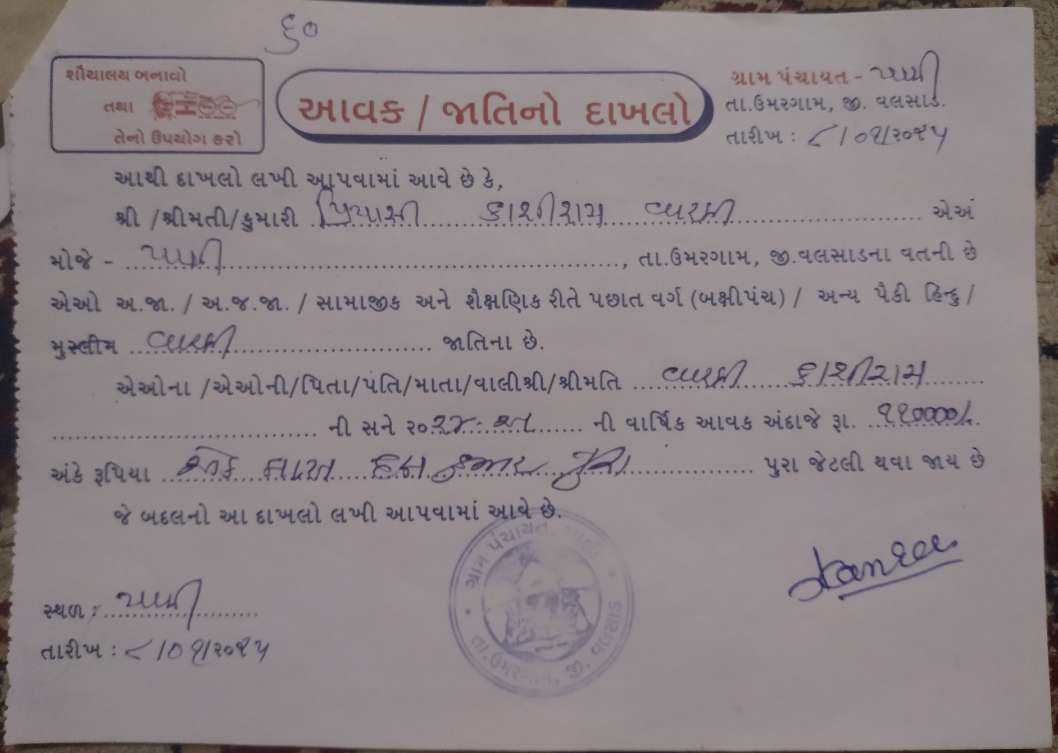 ૬૦
શૌચાલય બનાવો
તથા
તેનો ઉપયોગ કરો
આવક / જાતિનો દાખલો
ગ્રામ પંચાયત -
તા.ઉમરગામ, જી. વલસાડ.
તારીખ : ૮/૦૧/૨૦૧૫
આથી દાખલો લખી આપવામાં આવે છે કે,
શ્રી /શ્રીમતી/કુમારી પ્રિયાસી કાશીરામ વારલી એઅં
મોજે - , તા.ઉમરગામ, જી.વલસાડના વતની છે
એઓ અ.જા. / અ.જ.જા. / સામાજીક અને શૈક્ષણિક રીતે પછાત વર્ગ (બક્ષીપંચ) / અન્ય પૈકી હિન્દુ /
મુસ્લીમ વારલી જાતિના છે.
એઓના /એઓની/પિતા/પતિ/માતા/વાલીશ્રી/શ્રીમતિ વારલી કાશીરામ
ની સને ૨૦૧૪- ની વાર્ષિક આવક અંદાજે રૂા. ૧૧૦૦૦૦/-
અંકે રૂપિયા એક લાખ દસ હજાર પુરા પુરા જેટલી થવા જાય છે
જે બદલનો આ દાખલો લખી આપવામાં આવે છે.
ગ્રામ પંચાયત,
તા.ઉમરગામ, જી. વલસાડ
સ્થળ :
તારીખ : ૮/૦૧/૨૦૧૫